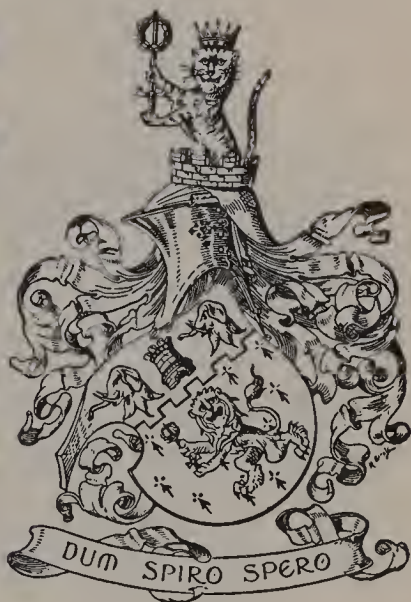 DUM SPIRO SPERO